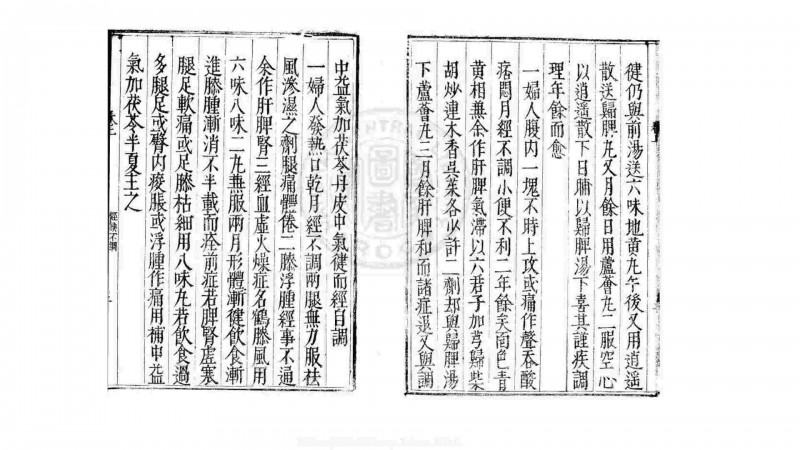 健仍與前湯送六味地黄丸午後又用逍遥
散送歸脾丸又月餘日用蘆薈丸二服空心
以逍遥散下日晡以歸脾湯下喜其謹疾調
理年餘而愈
一婦人腹内一塊不時上攻或痛作聲吞酸
痞悶月經不調小便不利二年餘矣面色青
黄相兼余作肝脾氣滯以六君子加芎歸柴
胡炒連木香吳茱各少許二劑却與歸脾湯
下蘆薈丸三月餘肝脾和而諸症退又與調
中益氣加茯苓丹皮中氣健而經自調
一婦人發熱口乾月經不調兩腿無力服祛
風滲濕之劑腿痛體倦二膝浮腫經事不通
余作肝脾腎三經血虛火燥症名鶴膝風用
六味八味二丸兼服兩月形體漸徤飲食漸
進膝腫漸消不半載而痊前症若脾腎虛寒
腿足軟痛或足膝枯細用八味丸若飲食過
多腿足或臀内痠脹或浮腫作痛用補中益
氣加茯苓半夏主之
經候不調